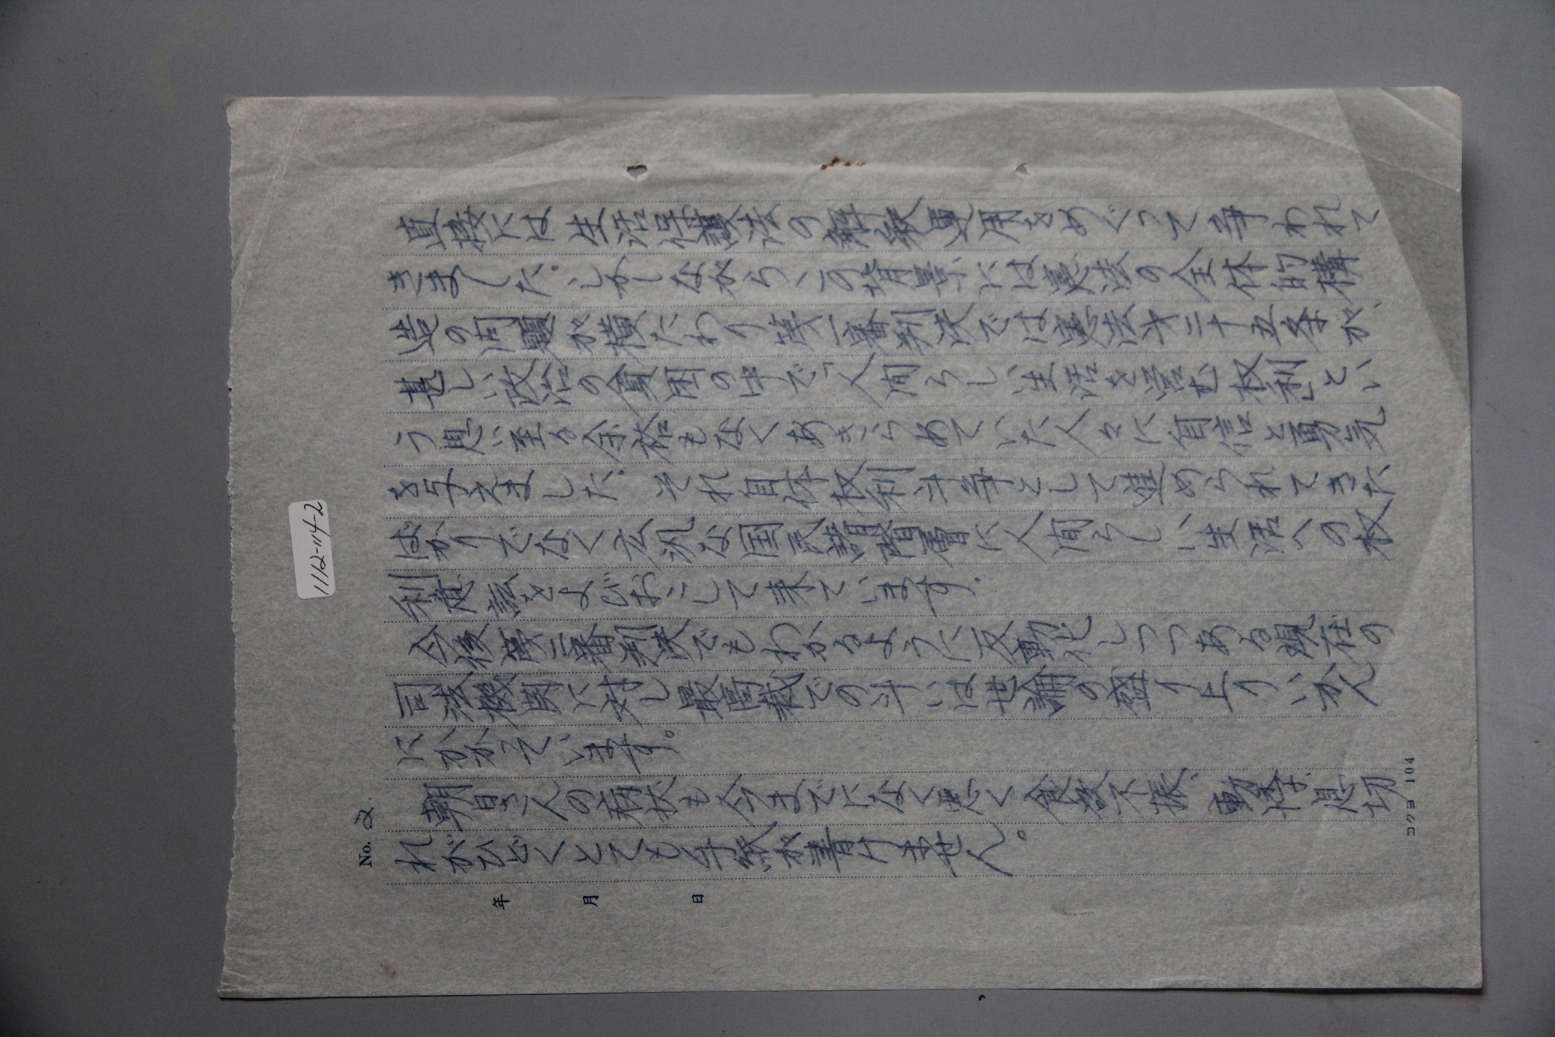 No. 2
直接には生活保護法の解釈運用をめぐって争われて
きました。しかしながらこの背景には憲法の全体的構
造の問題が横たわり第一審判決では憲法才二十五条が、
甚しい政治の貧困の中で「人間らしい生活を営む权利」とい
う思い至る余裕もなくあきらめていた人々に自信と勇気
を与えました。それ自体权利斗争として進められてきた
ばかりでなく広汎な国民諸階層に人間らしい生活への权
利意識をよびおこして来ています。
今後第二審判決でもわかるように反動化しつつある現在の
司法機関に対し最高裁での斗いは世論の盛り上りいかん
にかかっています。
朝日さんの病状も今までになく悪く食欲不振、動悸、息切
れがひどくとても手紙が書けません。
年 月 日
コクヨ 104